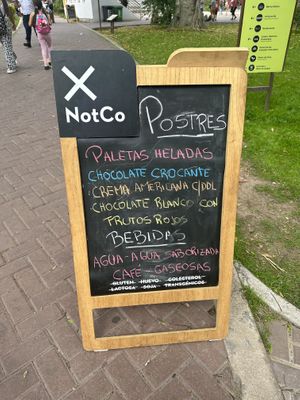 NotCo
POSTRES
PALETAS HELADAS
CHOCOLATE CROCANTE
CREMA AMERICANA C/DDL
CHOCOLATE BLANCO CON
FRUTOS ROJOS
BEBIDAS
AGUA - AGUA SABORIZADA
CAFÉ - GASEOSAS
GLUTEN HUEVO COLESTEROL
LACTOSA SOJA TRANSGÉNICOS